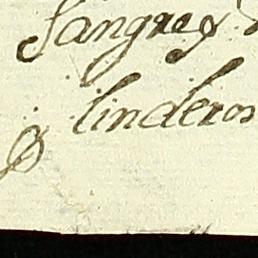 Sangre y
linderos